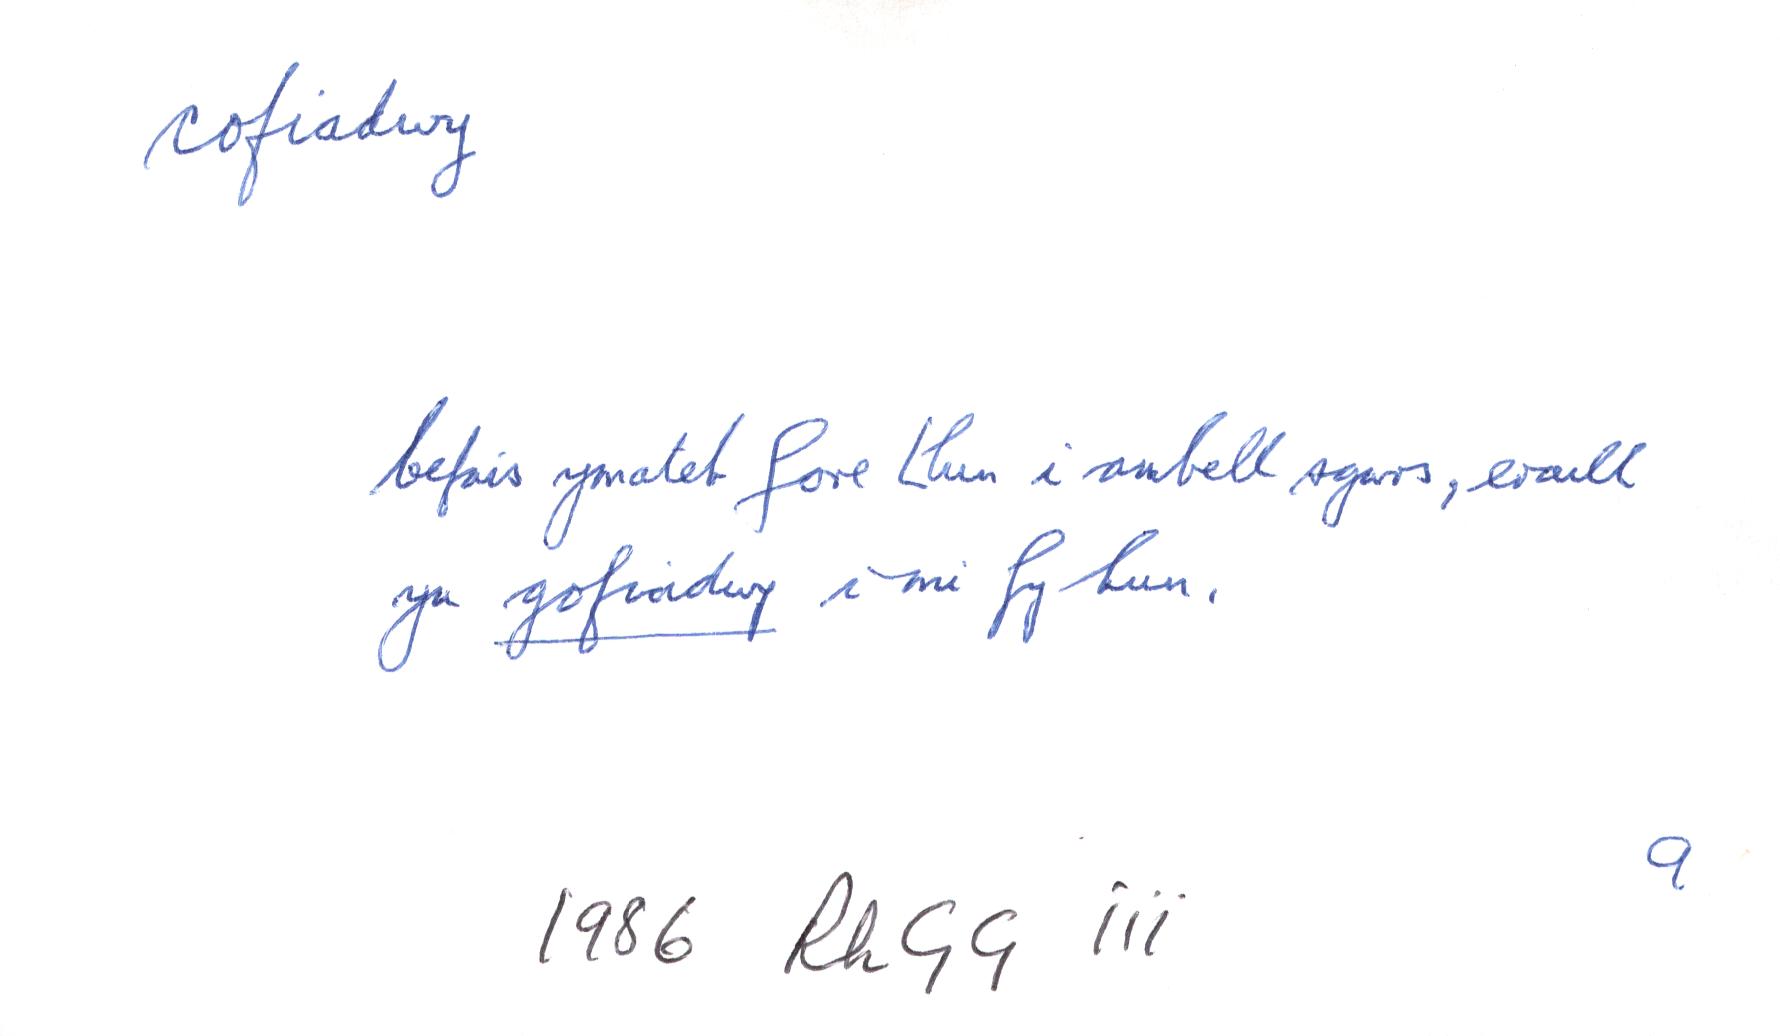 cofiadwy
befais ymateb fore Llun i ambell sgwrs, eraill
yn gofiadwy i mi fy hun.
9
1986 RhGG iii